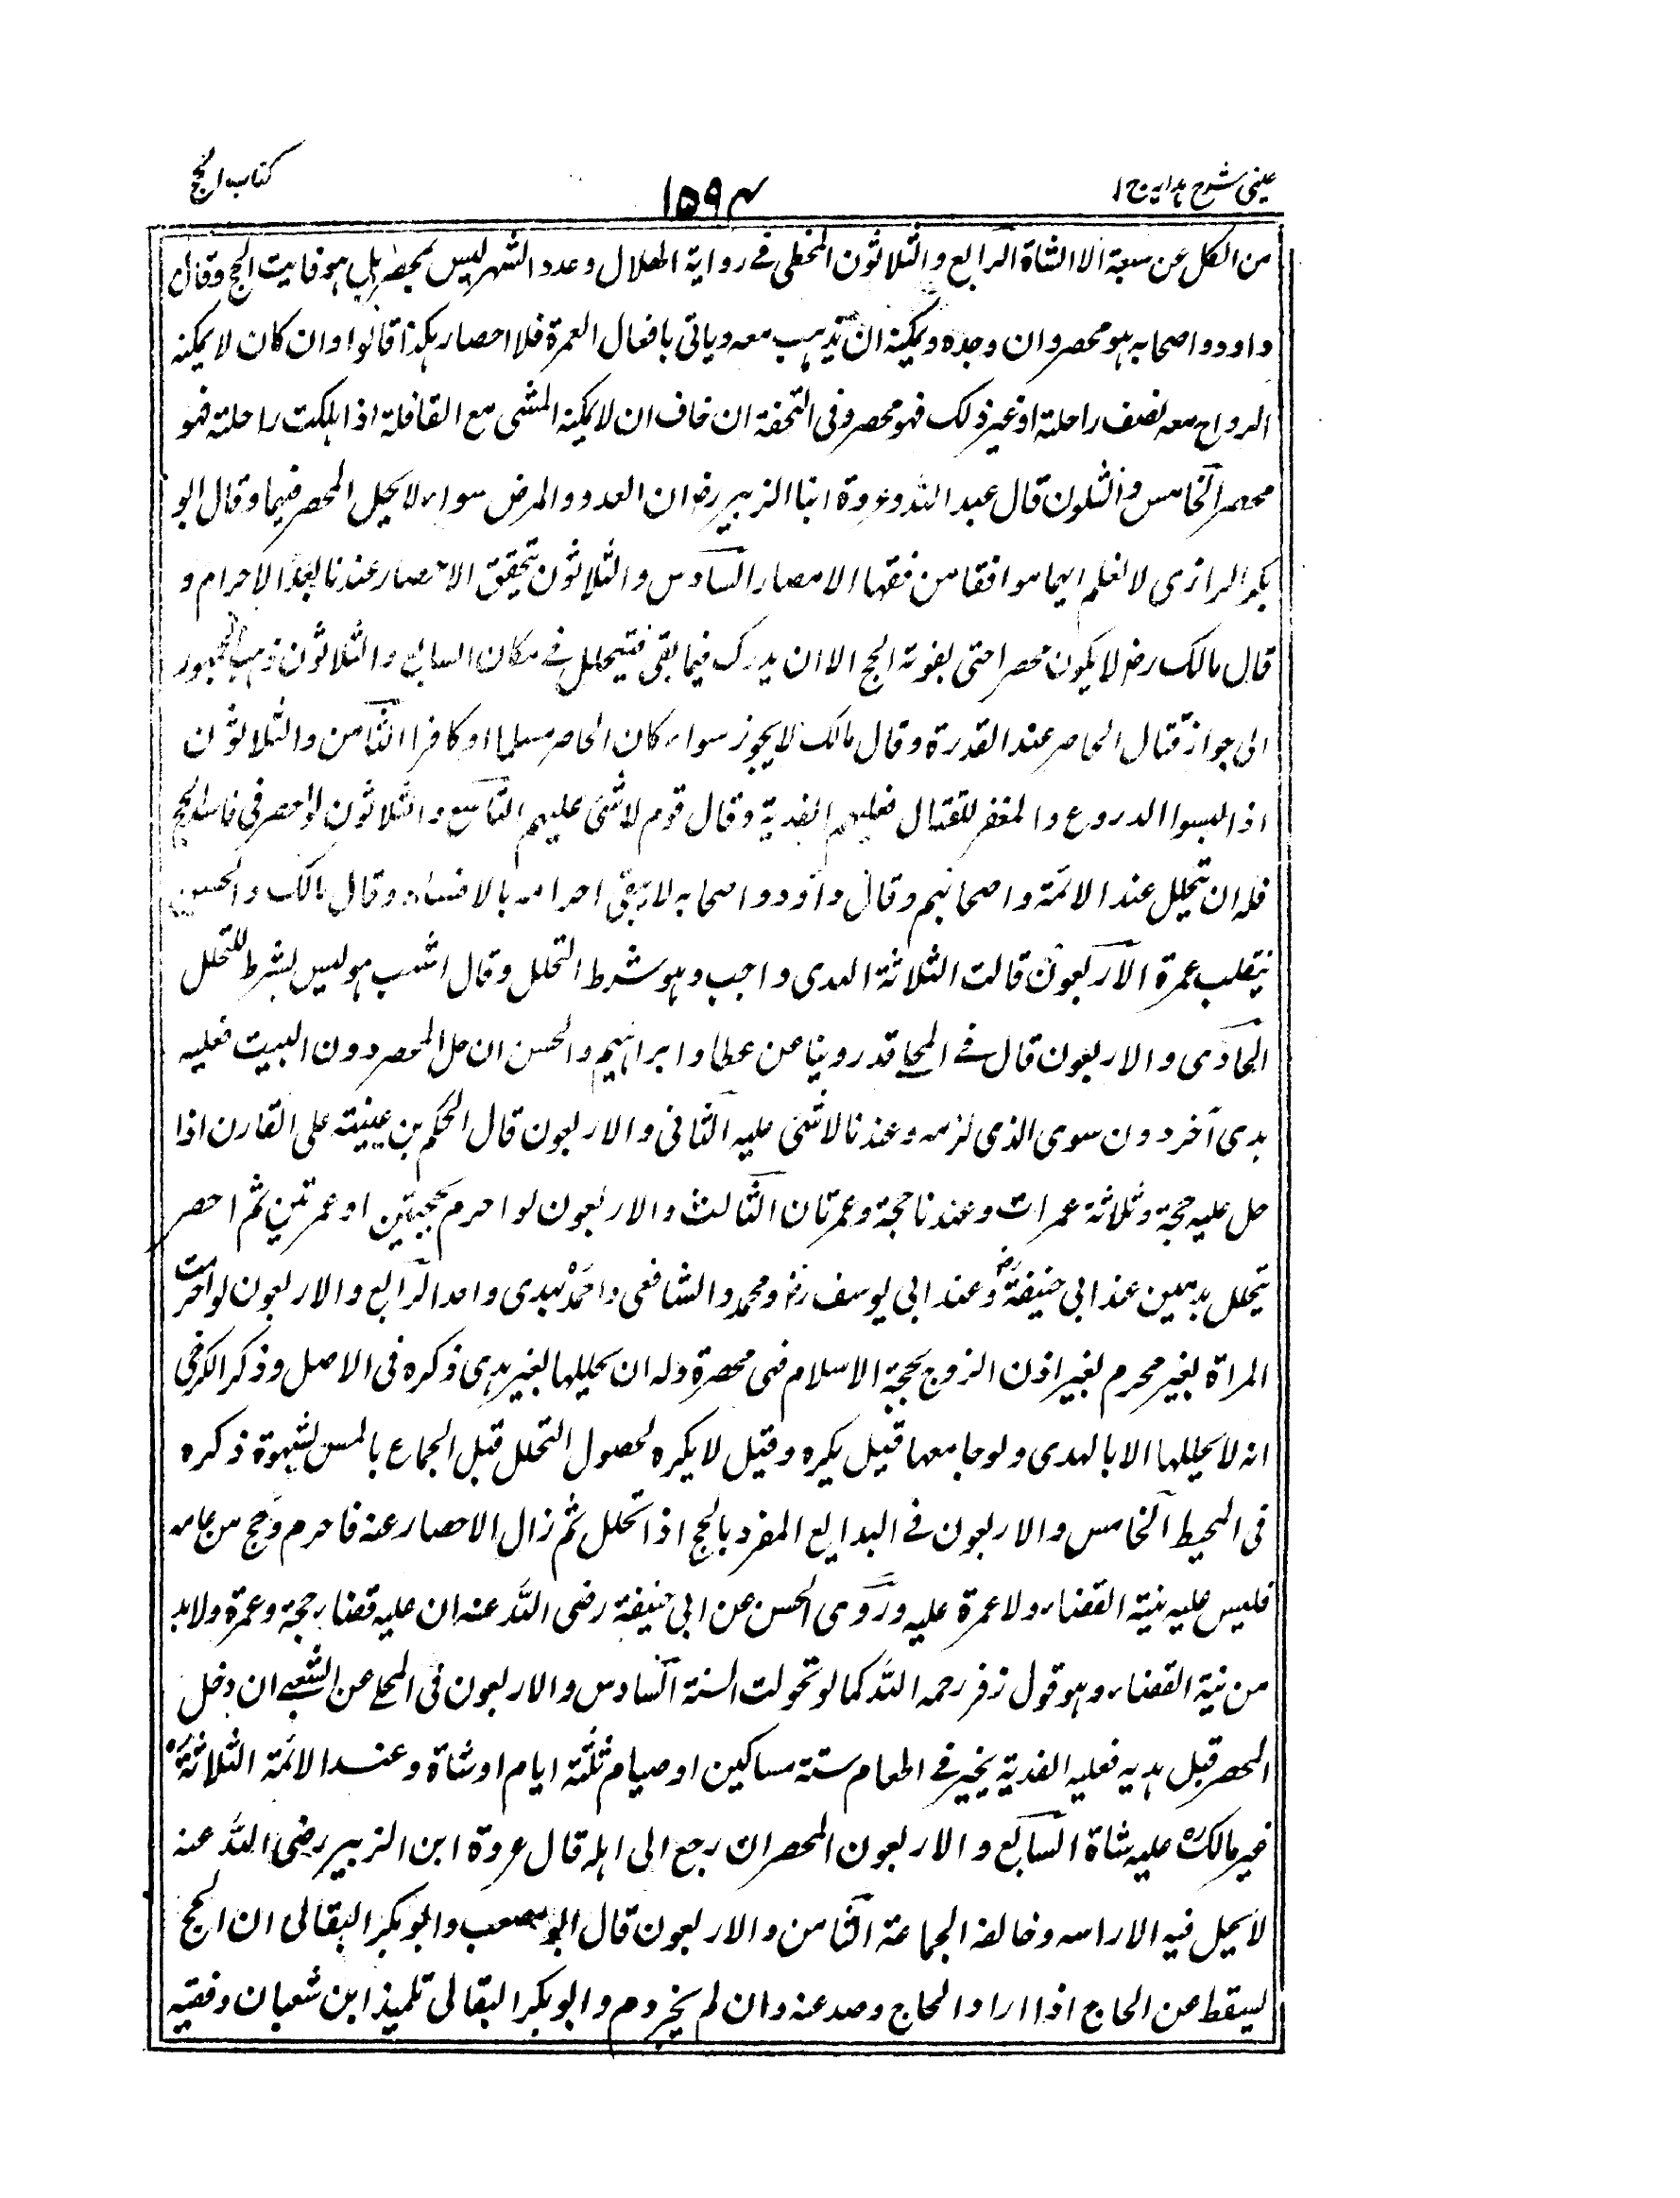 عینی شرح ہدایہ ج ۱
۱۵۹۴
کتاب الحج
من الكل عن سبعة الا الشاة الرابع والثلاثون المخطى فے رواية الهلال وعدد الشهر ليس بمحصر بل ہو فايت الحج وقال
داود واصحابه ہو محصر وان وجده ويمكنه ان يذہب معه وياتى بافعال العمرة فلا احصار ہكذا قالوا وان كان لا يمكنه
الرواح معه نصف راحلته او غير ذلك فهو محصر وفى التحفة ان خاف ان لا يمكنه المشى مع القافلة اذا ہلكت راحلته فهو
محصر الخامس والثلثون قال عبد الله وعروة ابنا الزبير رض ان العدو والمرض سواء لا يحل المحصر فيهما وقال ابو
بكر الرازى لا نعلم لهما موافقا من فقها الامصار السادس والثلاثون يتحقق الاحصار عندنا بعد الاحرام و
قال مالك رض لا يكون محصرا حتى يفوته الحج الا ان يدرك فيما بقى فيتحلل فے مكان السابع والثلاثون ذہب الجمهور
الى جواز قتال الحاصر عند القدرة وقال مالك لا يجوز سواء كان الحاصر مسلما او كافرا الثامن والثلاثون
اذا لبسوا الدروع والمغفر للقتال فعليهم الفدية وقال قوم لا شئ عليهم التاسع والثلاثون لو احصر فى فاسد الحج
فله ان يتحلل عند الائمة واصحابہم وقال داود واصحابه لا يبقى احرامه بالافساد وقال مالك والحسن
ينقلب عمرة الاربعون قالت الثلاثة الهدى واجب وہو شرط التحلل وقال اشهب ہو ليس بشرط للتحلل
الحادى والاربعون قال فے المحلے قد روينا عن عطا وابراہيم والحسن ان حل المحصر دون البيت فعليه
ہدى آخر دون سوى الذى لزمه وعندنا لا شئ عليه الثانى والاربعون قال الحكم بن عيينة على القارن اذا
حل عليه حجة وثلاثة عمرات وعندنا حجة وعمرتان الثالث والاربعون لو احرم بحجتين او عمرتين ثم احصر
يتحلل بدمين عند ابى حنيفة رض وعند ابى يوسف رض ومحمد والشافعى واحمد بهدى واحد الرابع والاربعون لو احرمت
المراة بغير محرم بغير اذن الزوج بحجة الاسلام فهى محصرة وله ان يحللها بغير ہدى ذكره فى الاصل وذكر الكرخى
انه لا يحللها الا بالهدى ولو جامعها قيل يكره وقيل لا يكره لحصول التحلل قبل الجماع بالمس بشهوة ذكره
فى المحيط الخامس والاربعون فے البدايع المفرد بالحج اذا تحلل ثم زال الاحصار عنه فاحرم وحج من عامه
فليس عليه نية القضاء ولا عمرة عليه وروى الحسن عن ابى حنيفة رضى الله عنه ان عليه قضاء حجة وعمرة ولا بد
من نية القضاء وہو قول زفر رحمه الله كما لو تحولت السنة السادس والاربعون فى المحلے عن الشعبے ان دخل
المحصر قبل ہديه فعليه الفدية يخير فے اطعام ستة مساكين او صيام ثلثة ايام او شاة وعند الائمة الثلاثة رح
غير مالك رح عليه شاة السابع والاربعون المحصر ان رجع الى اہله قال عروة ابن الزبير رضى الله عنه
لا يحل فيه الا راسه وخالفه الجماعة الثامن والاربعون قال ابو مصعب وابو بكر البقالى ان الحج
ليسقط عن الحاج اذا اراد الحاج وصد عنه وان لم يخر دم وابو بكر البقالى تلميذ ابن شعبان وفقيه